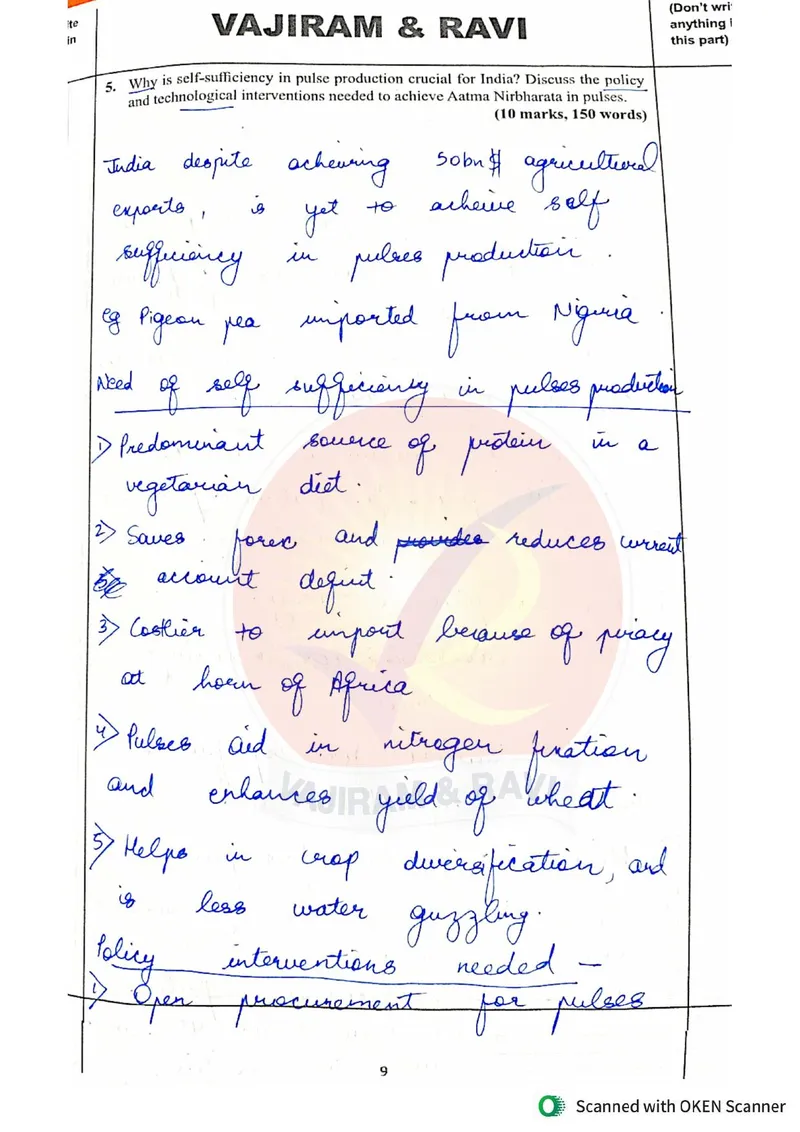 ite
in
VAJIRAM & RAVI
(Don't wri
anything i
this part)
5. Why is self-sufficiency in pulse production crucial for India? Discuss the policy
and technological interventions needed to achieve Aatma Nirbharata in pulses.
(10 marks, 150 words)
India despite acheiving 50bn$ agricultural
exports, is yet to acheive self
sufficiency in pulses production.
eg Pigeon pea imported from Nigeria.
Need of self sufficiency in pulses production
1) Predominant source of protein in a
vegetarian diet.
2) Saves forex and provides reduces current
account deficit.
3) Costlier to import because of piracy
at horn of Africa
4) Pulses aid in nitrogen fixation
and enhances yield of wheat.
5) Helps in crop diversification, and
is less water guzzling.
VAJIRAM & RAVI
Policy interventions needed –
1) Open procurement for pulses
9
Scanned with OKEN Scanner